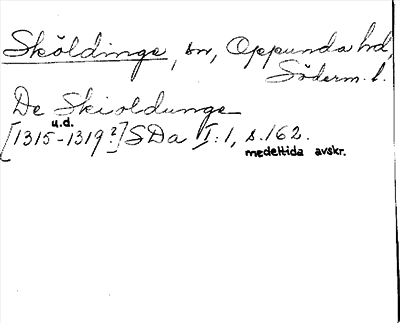 Sköldinge, sn, Oppunda hd,
Söderm. l.
De Skioldunge
u.d.
[1315-1319?] SDa I:1, s.162.
medeltida avskr.